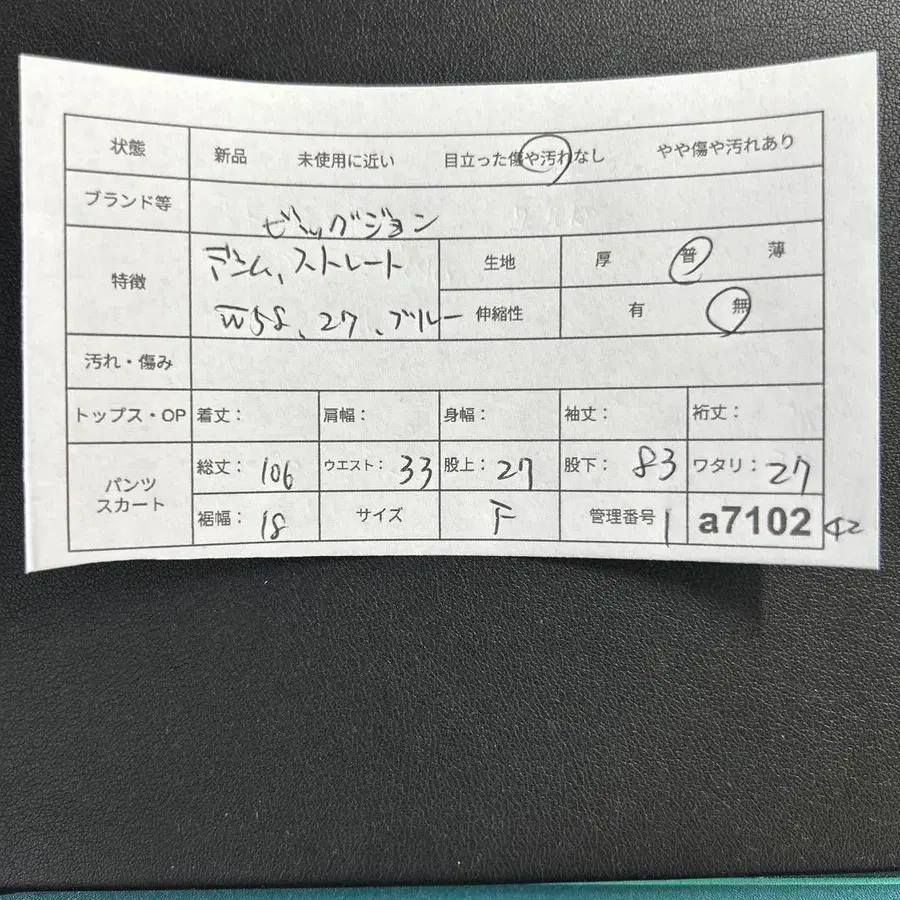 状態 新品 未使用に近い 目立った傷や汚れなし やや傷や汚れあり
ブランド等 ビッグジョン
特徴 デニム、ストレート
W58、27、ブルー
生地 厚 普 薄
伸縮性 有 無
汚れ・傷み
トップス・OP 着丈： 肩幅： 身幅： 袖丈： 裄丈：
パンツ
スカート
総丈：106 ウエスト：33 股上：27 股下：83 ワタリ：27
裾幅：18 サイズ F 管理番号 1 a7102